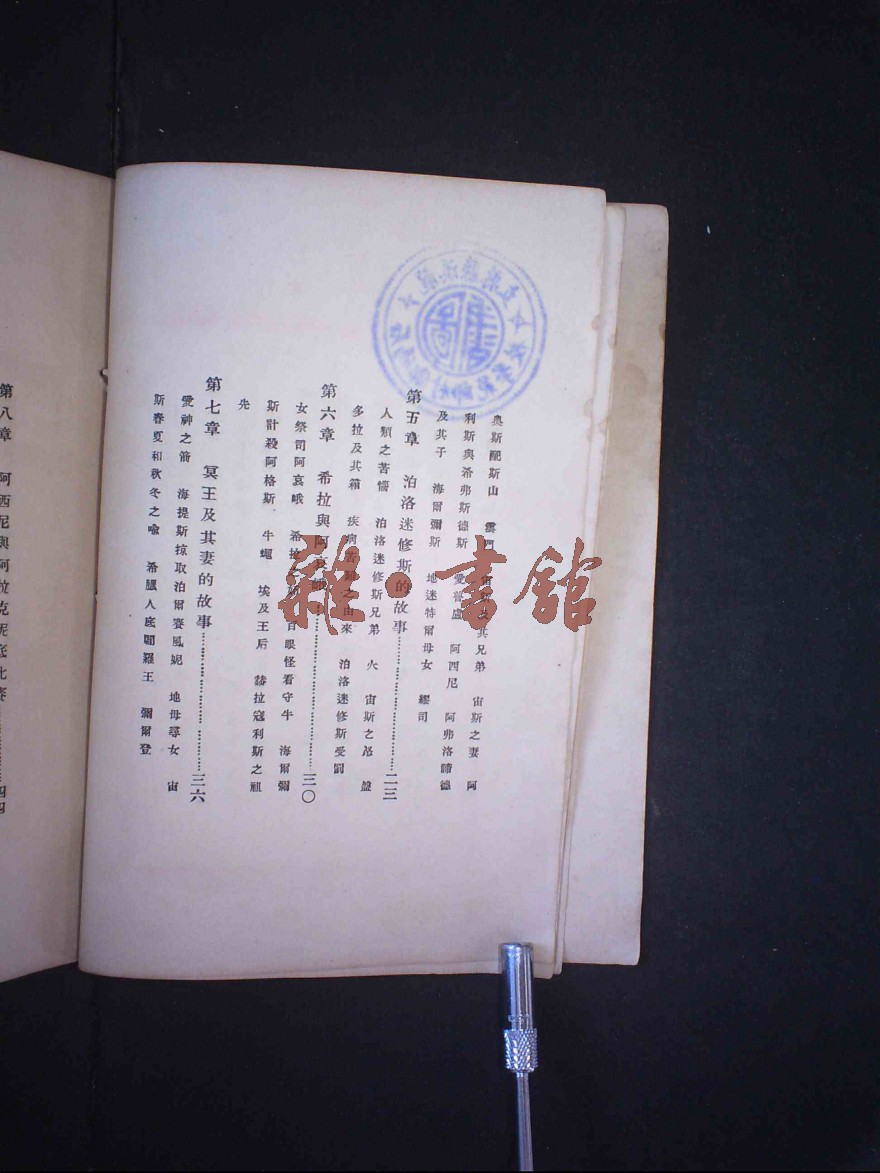 奧斯配斯山　雲門　宙斯及其兄弟　宙斯之妻　阿
利斯與希弗斯德斯　愛普盧　阿西尼　阿弗洛諦德
及其子　海爾彌斯　地迷特爾母女　繆司
第五章　泊洛迷修斯的故事……………………二三
人類之苦惱　泊洛迷修斯兄弟　火　宙斯之怒　盤
多拉及其箱　疾病　之由來　泊洛迷修斯受罰
第六章　希拉與阿哀　……………………三〇
女祭司阿哀哦　希拉　百眼怪看守牛　海爾彌
斯計殺阿格斯　牛蠅　埃及王后　赫拉寇利斯之祖
先
第七章　冥王及其妻的故事……………………三六
愛神之箭　海提斯掠取泊爾賽風妮　地母尋女　宙
斯春夏和秋冬之喻　希臘人底閻羅王　彌爾登
第八章　阿西尼與阿拉克妮底比賽……………………四四
雜·書館